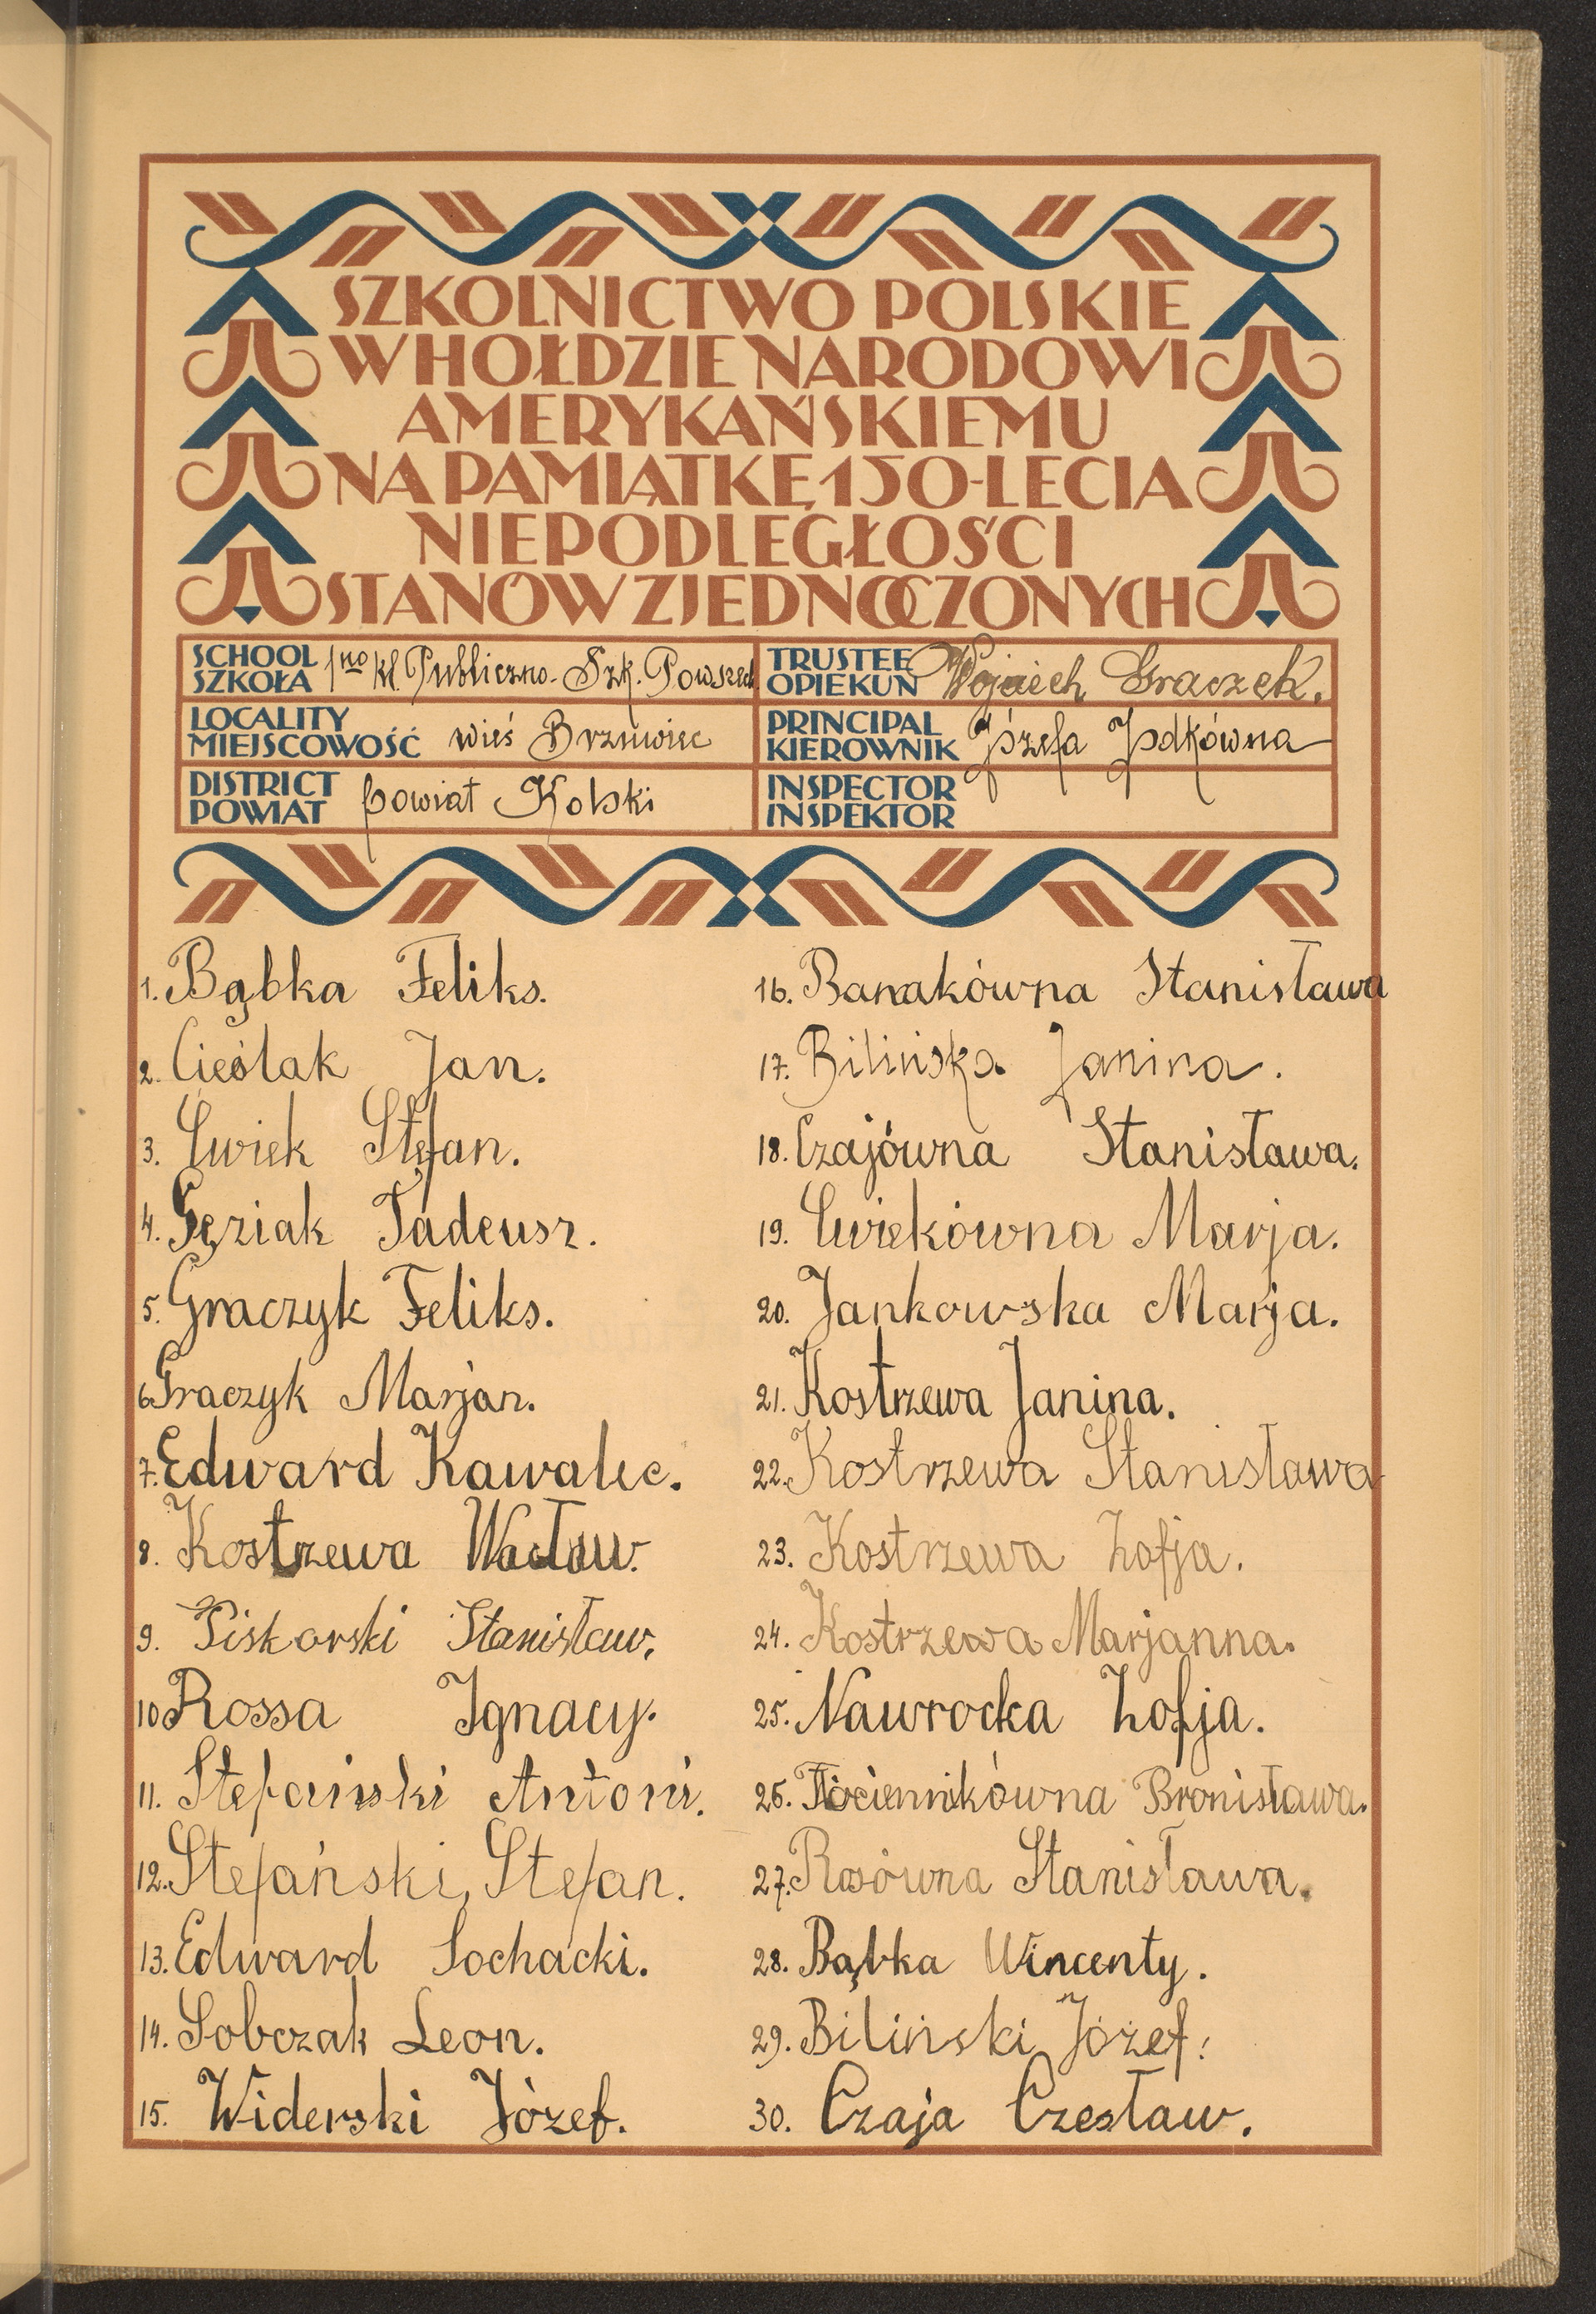 SZKOLNICTWO POLSKIE
W HOŁDZIE NARODOWI
AMERYKAŃSKIEMU
NA PAMIĄTKĘ 150-LECIA
NIEPODLEGŁOŚCI
STANÓW ZJEDNOCZONYCH
SCHOOL
SZKOŁA 1no kl. Publiczno. Szk. Powszech
LOCALITY
MIEJSCOWOŚĆ wieś Brzuwiec
DISTRICT
POWIAT powiat Kolski
TRUSTEE
OPIEKUN Wojciech Graczek.
PRINCIPAL
KIEROWNIK Józefa Jodkówna
INSPECTOR
INSPEKTOR
1. Bąbka Feliks.
2. Cieślak Jan.
3. Cwiek Stefan.
4. Gęziak Tadeusz.
5. Graczyk Feliks.
6. Graczyk Marjan.
7. Edward Kawalec.
8. Kostrzewa Wacław.
9. Piskorski Stanisław.
10 Rossa Ignacy.
11. Stefański Antoni.
12. Stefański, Stefan.
13. Edward Sochacki.
14. Sobczak Leon.
15. Widerski Józef.
16. Banakówna Stanisława
17. Bilińska Janina.
18. Czajówna Stanisława.
19. Cwiekówna Marja.
20. Jankowska Marja.
21. Kostrzewa Janina.
22. Kostrzewa Stanisława
23. Kostrzewa Zofja.
24. Kostrzewa Marjanna.
25. Nawrocka Zofja.
26. Bronisława.
27. Stanisława.
28. Bąbka Wincenty.
29. Biliński Józef.
30. Czaja Czesław.